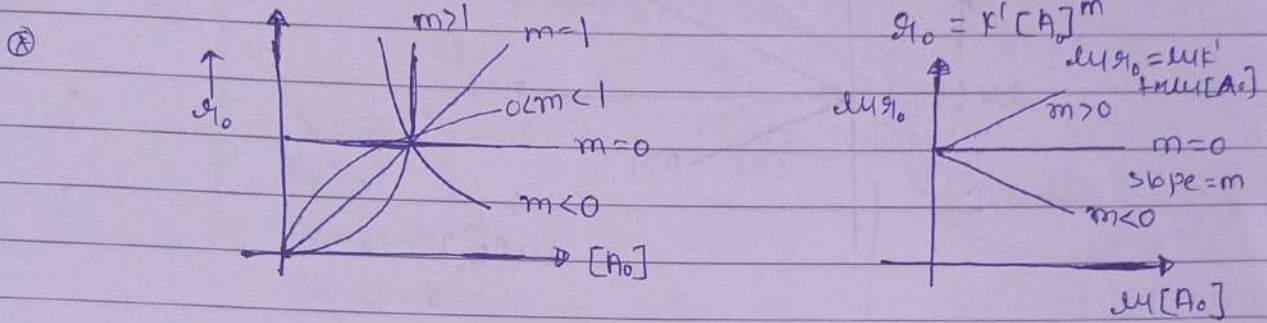 Ⓧ
m>1
m=1
r₀
0<m<1
m=0
m<0
[A₀]
r₀ = K' [A₀]^m
ln r₀ = ln K'
+m ln [A₀]
ln r₀
m>0
m=0
slope=m
m<0
ln [A₀]